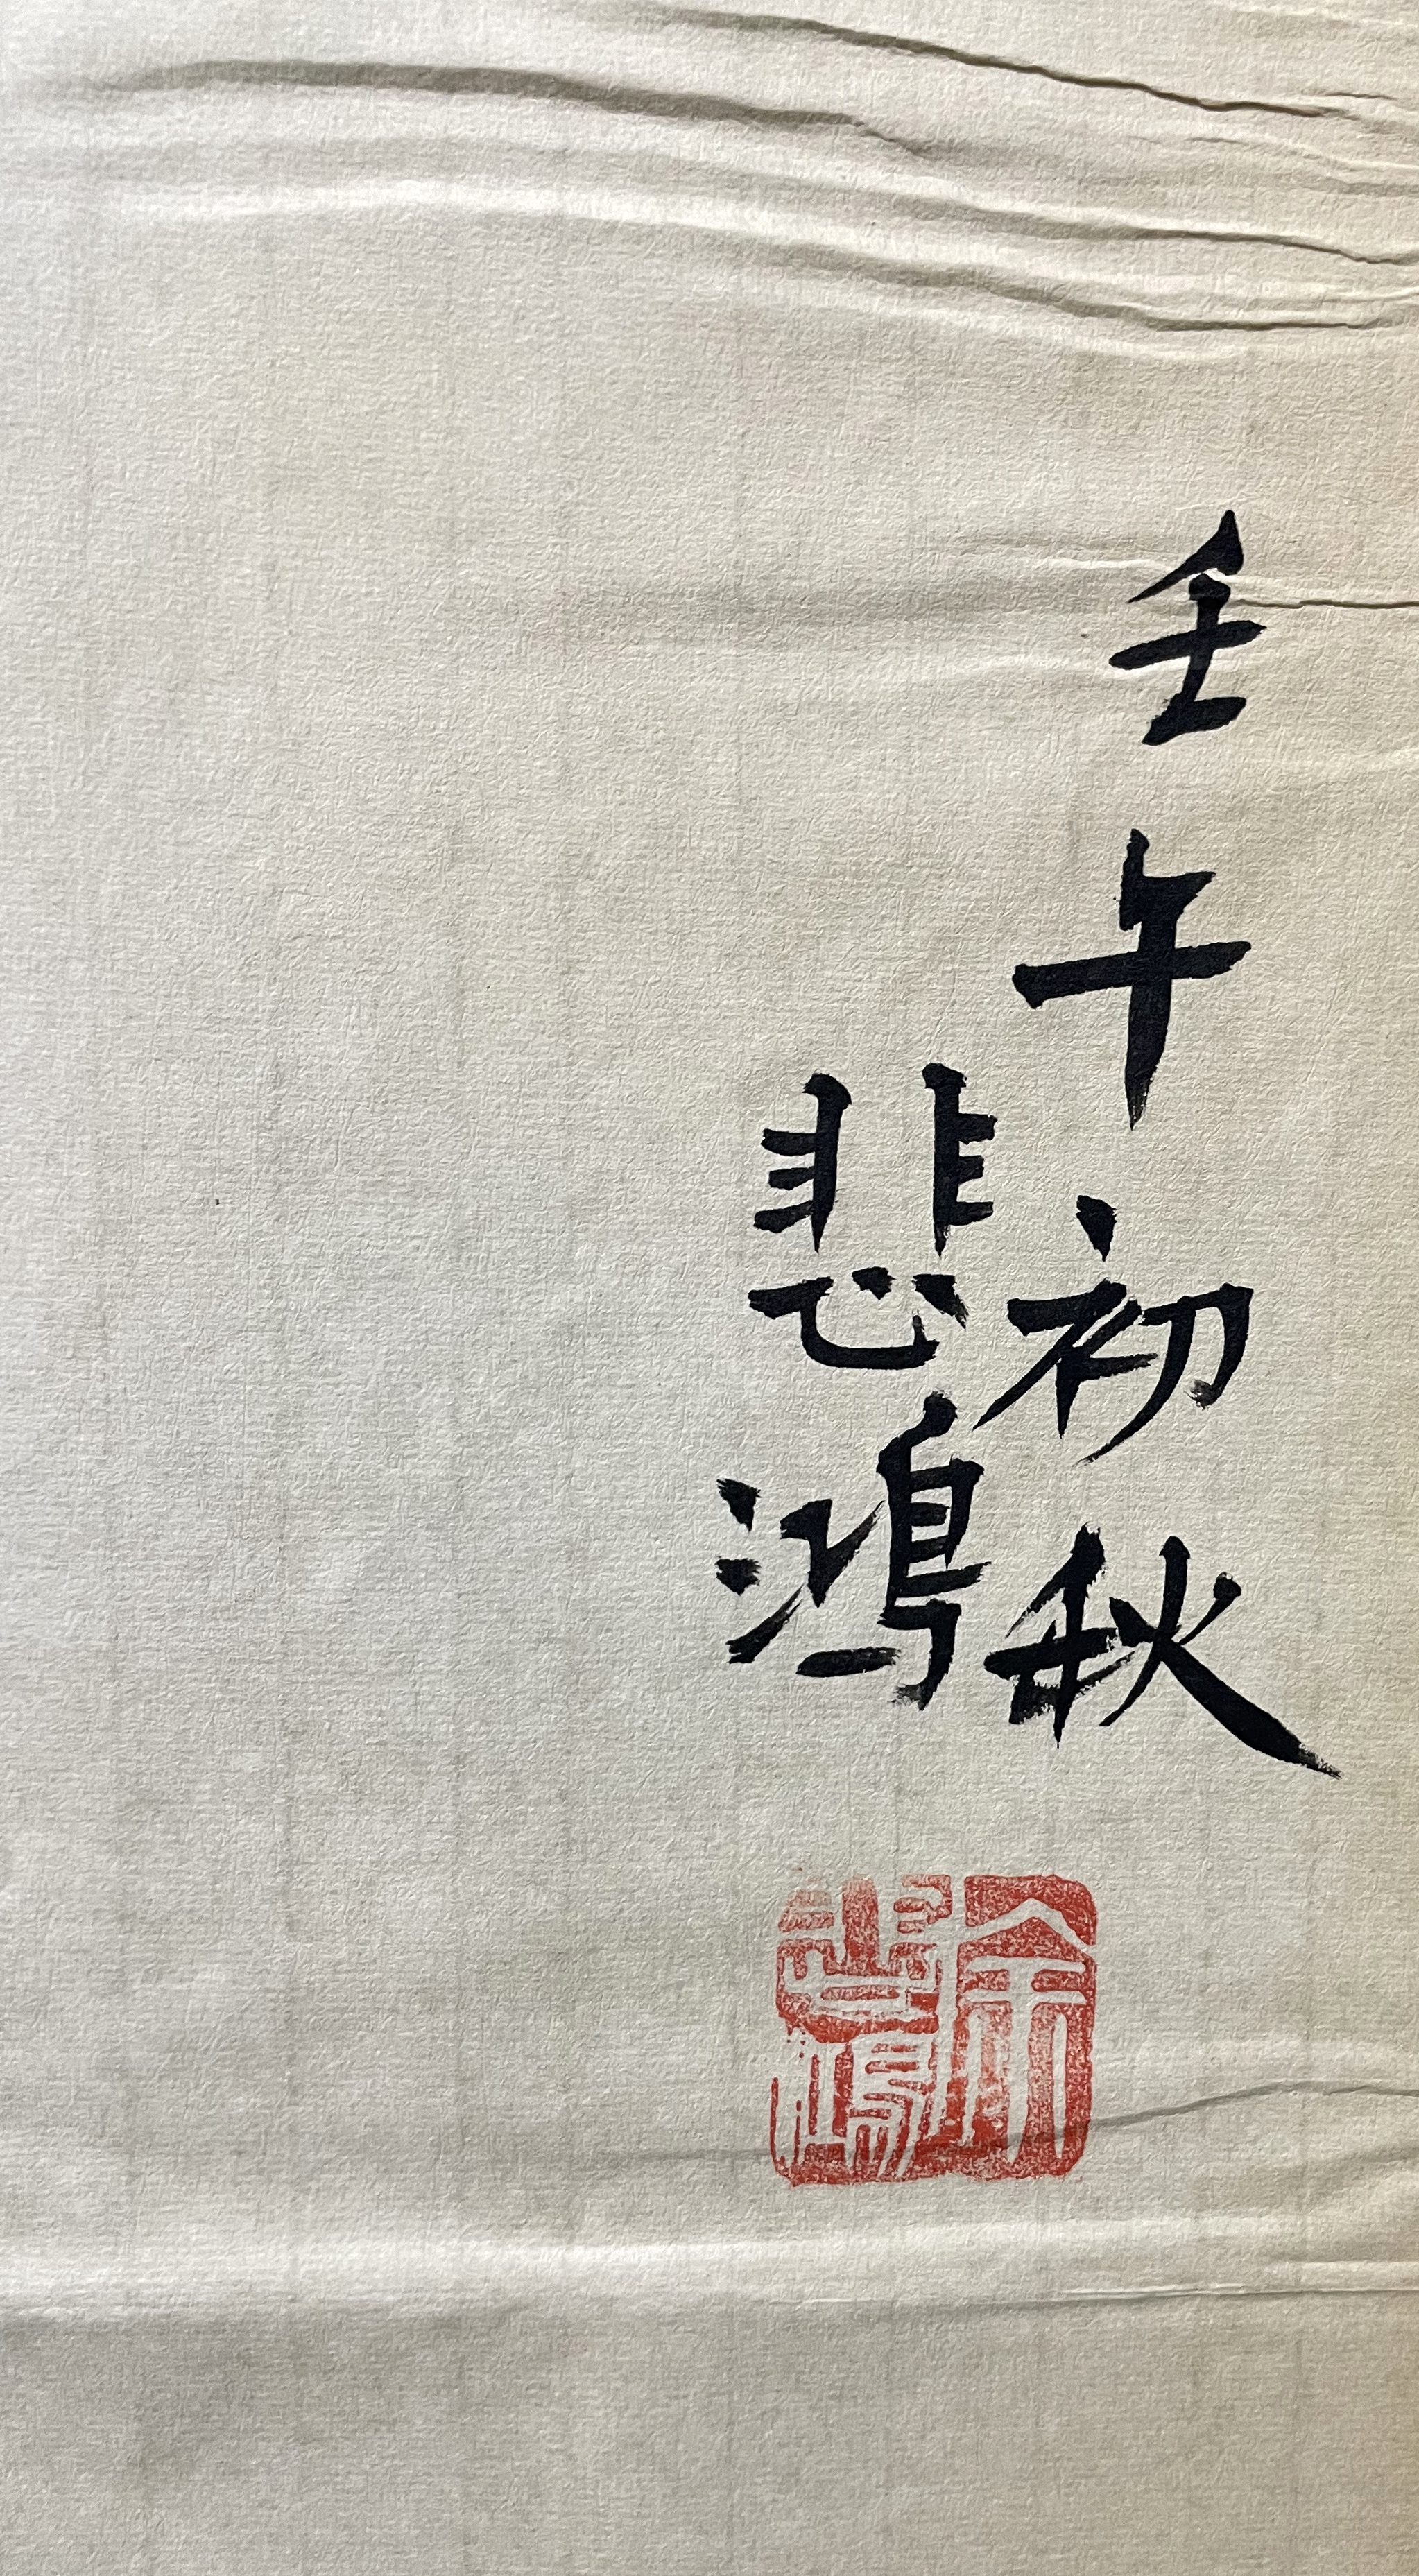 壬午初秋
悲鴻
徐悲鴻